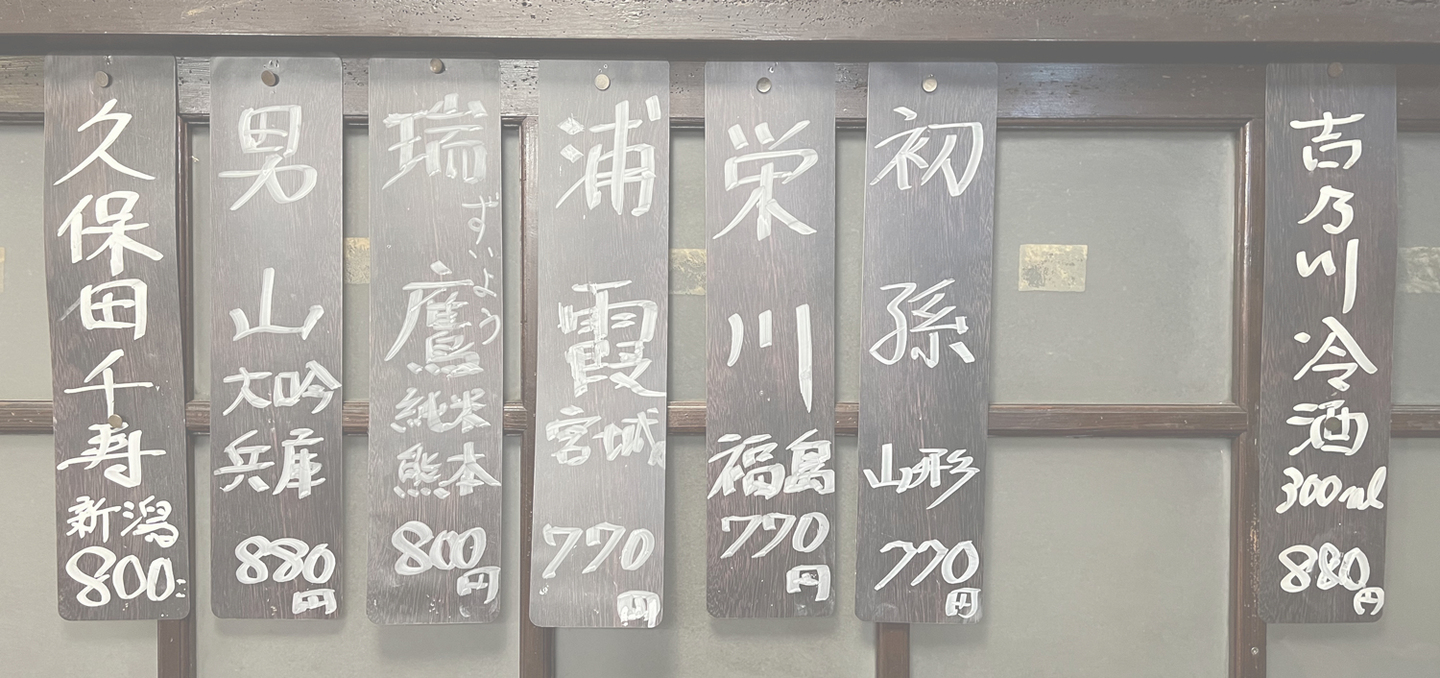 久保田千寿
新潟
800
男山
大吟
兵庫
880
円
瑞鷹
ずいよう
純米
熊本
800
円
浦霞
宮城
770
円
栄川
福島
770
円
初孫
山形
770
円
吉乃川冷酒
300ml
880
円